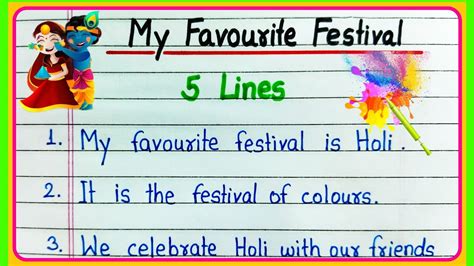 My Favourite Festival
5 Lines
1. My favourite festival is Holi.
2. It is the festival of colours.
3. We celebrate Holi with our friends